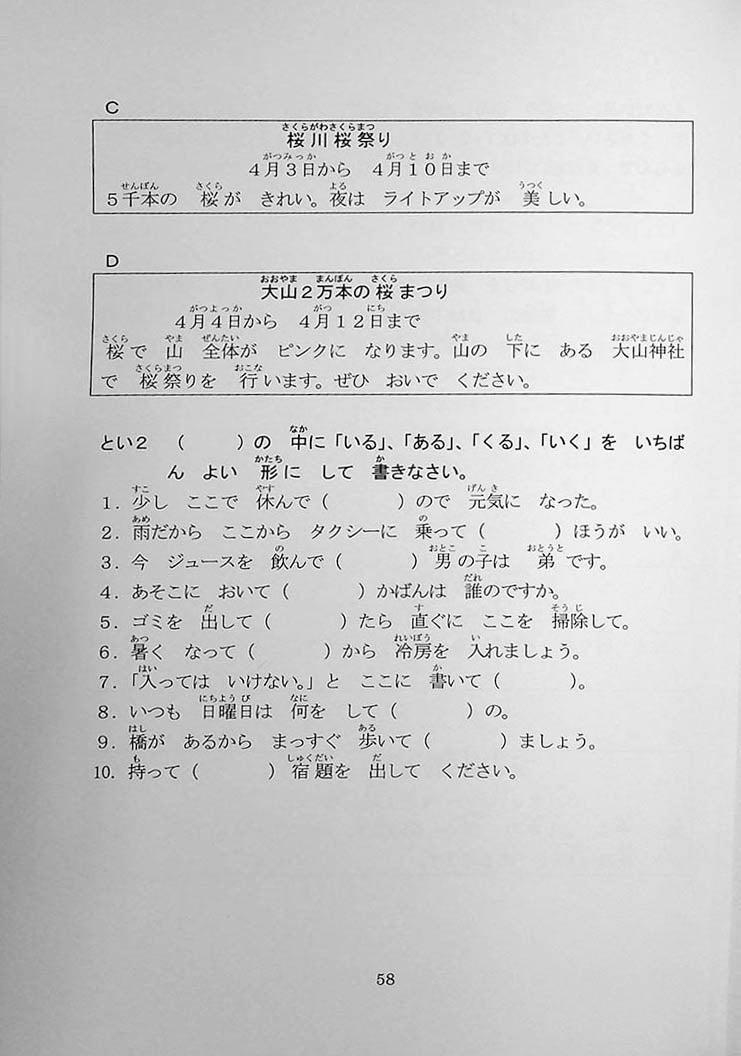 C
桜川桜祭り
4月3日から 4月10日まで
5千本の 桜が きれい。夜は ライトアップが 美しい。
D
大山2万本の桜まつり
4月4日から 4月12日まで
桜で 山 全体が ピンクに なります。山の 下に ある 大山神社
で 桜祭りを 行います。ぜひ おいで ください。
とい2 （ ）の 中に「いる」、「ある」、「くる」、「いく」を いちば
ん よい 形に して 書きなさい。
1．少し ここで 休んで（ ）ので 元気に なった。
2．雨だから ここから タクシーに 乗って（ ）ほうが いい。
3．今 ジュースを 飲んで（ ）男の子は 弟です。
4．あそこに おいて（ ）かばんは 誰のですか。
5．ゴミを 出して（ ）たら 直ぐに ここを 掃除して。
6．暑く なって（ ）から 冷房を 入れましょう。
7．「入っては いけない。」と ここに 書いて（ ）。
8．いつも 日曜日は 何を して（ ）の。
9．橋が あるから まっすぐ 歩いて（ ）ましょう。
10．持って（ ）宿題を 出して ください。
58